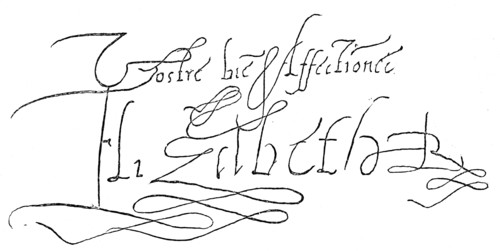 Vostre biē Affectionée
Elizabeth R